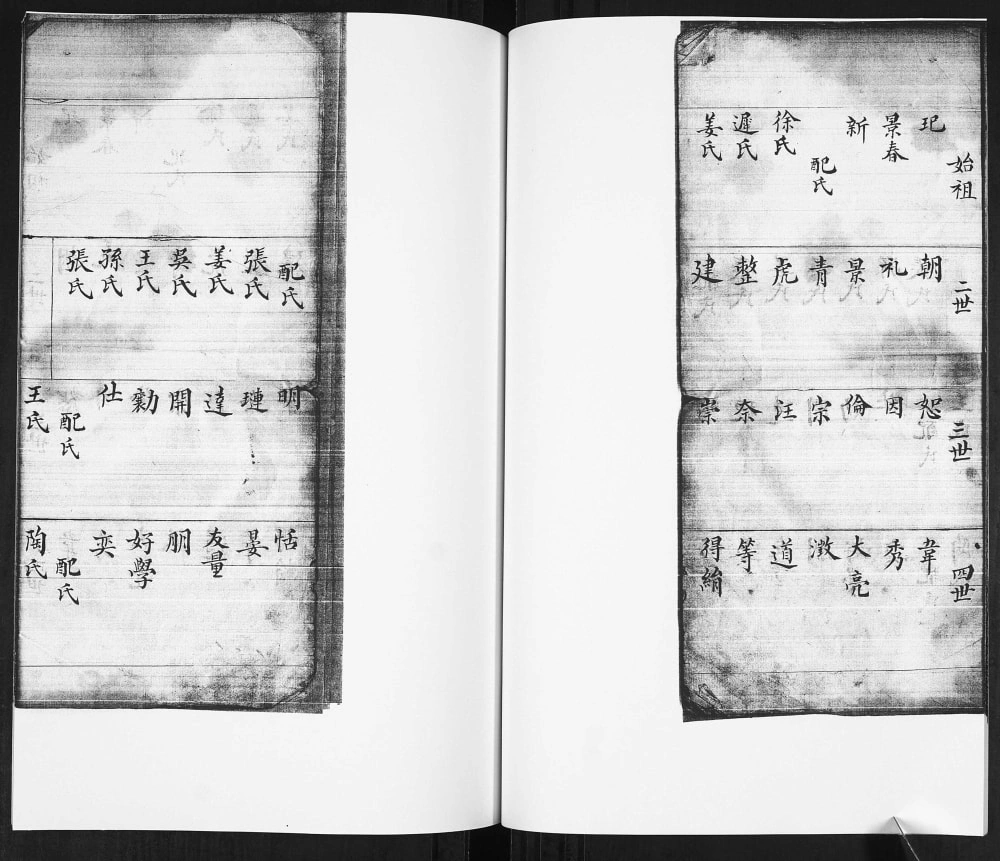 始祖
玘
景春
新
配氏
徐氏
遲氏
姜氏
二世
朝
礼
景
青
虎
整
建
三世
恕
因
倫
宗
汪
奈
崇
四世
韋
秀
大亮
澂
道
等
得絹
配氏
張氏
姜氏
吳氏
王氏
孫氏
張氏
明
璉
達
開
勷
仕
配氏
王氏
恬
晏
友量
朋
好學
奕
配氏
陶氏